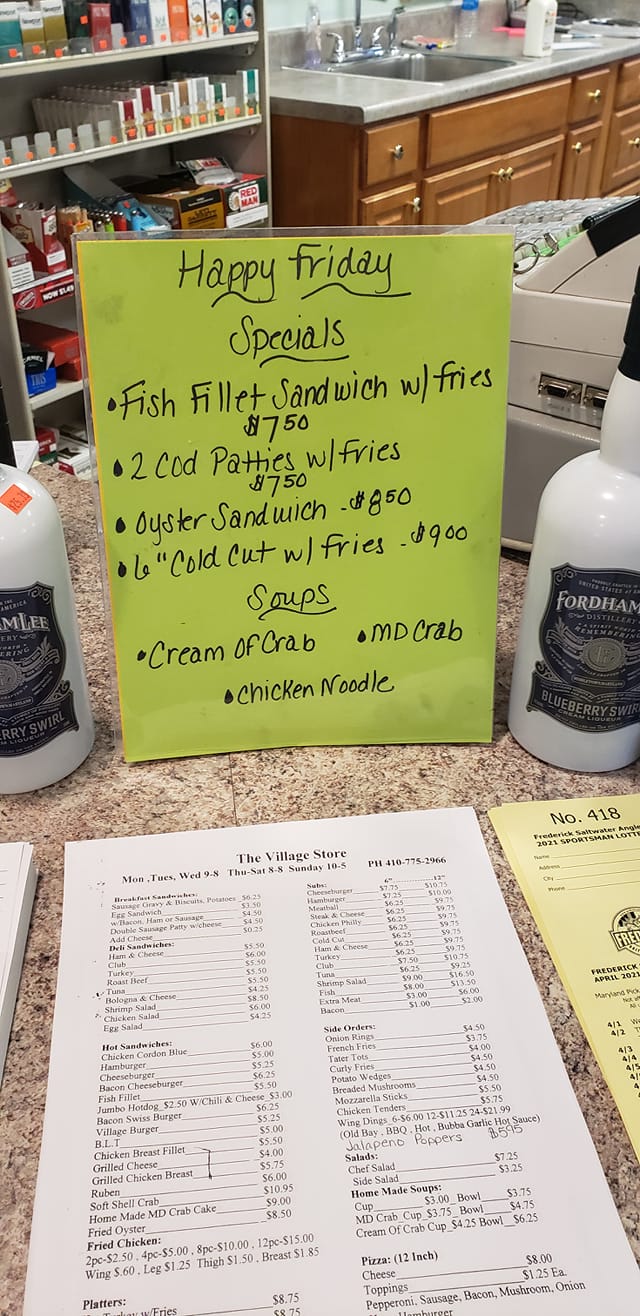 RED MAN
NOW $1.49
CAMEL
Happy Friday
Specials
• Fish Fillet Sandwich w/ fries
$7 50
• 2 Cod Patties w/ fries
$7 50
• Oyster Sandwich - $8 50
• 6" Cold Cut w/ fries - $9 00
Soups
• Cream Of Crab • MD Crab
• Chicken Noodle
FORDHAM
DISTILLERY
REMEMBERING
BLUEBERRY SWIRL
CREAM LIQUEUR
The Village Store
Mon ,Tues, Wed 9-8 Thu-Sat 8-8 Sunday 10-5 PH 410-775-2966
Breakfast Sandwiches:
Sausage Gravy & Biscuits, Potatoes $6.25
Egg Sandwich $3.50
w/Bacon, Ham or Sausage $4.50
Double Sausage Patty w/cheese $4.50
Add Cheese $0.25
Deli Sandwiches:
Ham & Cheese $5.50
Club $6.00
Turkey $5.50
Roast Beef $5.50
Tuna $5.50
Bologna & Cheese $4.25
Shrimp Salad $8.50
Chicken Salad $6.00
Egg Salad $4.25
Hot Sandwiches:
Chicken Cordon Blue $6.00
Hamburger $5.00
Cheeseburger $5.25
Bacon Cheeseburger $6.25
Fish Fillet $5.50
Jumbo Hotdog $2.50 W/Chili & Cheese $3.00
Bacon Swiss Burger $6.25
Village Burger $5.25
B.L.T $5.00
Chicken Breast Fillet $5.50
Grilled Cheese $4.00
Grilled Chicken Breast $5.75
Ruben $6.00
Soft Shell Crab $10.95
Home Made MD Crab Cake $9.00
Fried Oyster $8.50
Fried Chicken:
2pc-$2.50 , 4pc-$5.00 , 8pc-$10.00 , 12pc-$15.00
Wing $.60 , Leg $1.25 Thigh $1.50 , Breast $1.85
Platters:
w/Fries $8.75
$8.75
Subs: 6" 12"
Cheeseburger $7.75 $10.75
Hamburger $7.25 $10.00
Meatball $6.25 $9.75
Steak & Cheese $6.25 $9.75
Chicken Philly $6.25 $9.75
Roastbeef $6.25 $9.75
Cold Cut $6.25 $9.75
Ham & Cheese $6.25 $9.75
Turkey $6.25 $9.75
Club $7.50 $10.75
Tuna $6.25 $9.25
Shrimp Salad $9.00 $16.50
Fish $8.00 $13.50
Extra Meat $3.00 $6.00
Bacon $1.00 $2.00
Side Orders:
Onion Rings $4.50
French Fries $3.75
Tater Tots $4.00
Curly Fries $4.50
Potato Wedges $4.50
Breaded Mushrooms $4.50
Mozzarella Sticks $5.50
Chicken Tenders $5.75
Wing Dings 6-$6.00 12-$11.25 24-$21.99
(Old Bay , BBQ , Hot , Bubba Garlic Hot Sauce)
Jalapeno Poppers $5.95
Salads:
Chef Salad $7.25
Side Salad $3.25
Home Made Soups:
Cup $3.00 Bowl $3.75
MD Crab Cup $3.75 Bowl $4.75
Cream Of Crab Cup $4.25 Bowl $6.25
Pizza: (12 Inch)
Cheese $8.00
Toppings $1.25 Ea.
Pepperoni, Sausage, Bacon, Mushroom, Onion
Hamburger
No. 418
Frederick Saltwater Angle
2021 SPORTSMAN LOTTE
Name
Address
City
Phone
FREDERICK
APRIL 2021
Maryland Pick
4/1
4/2
4/3